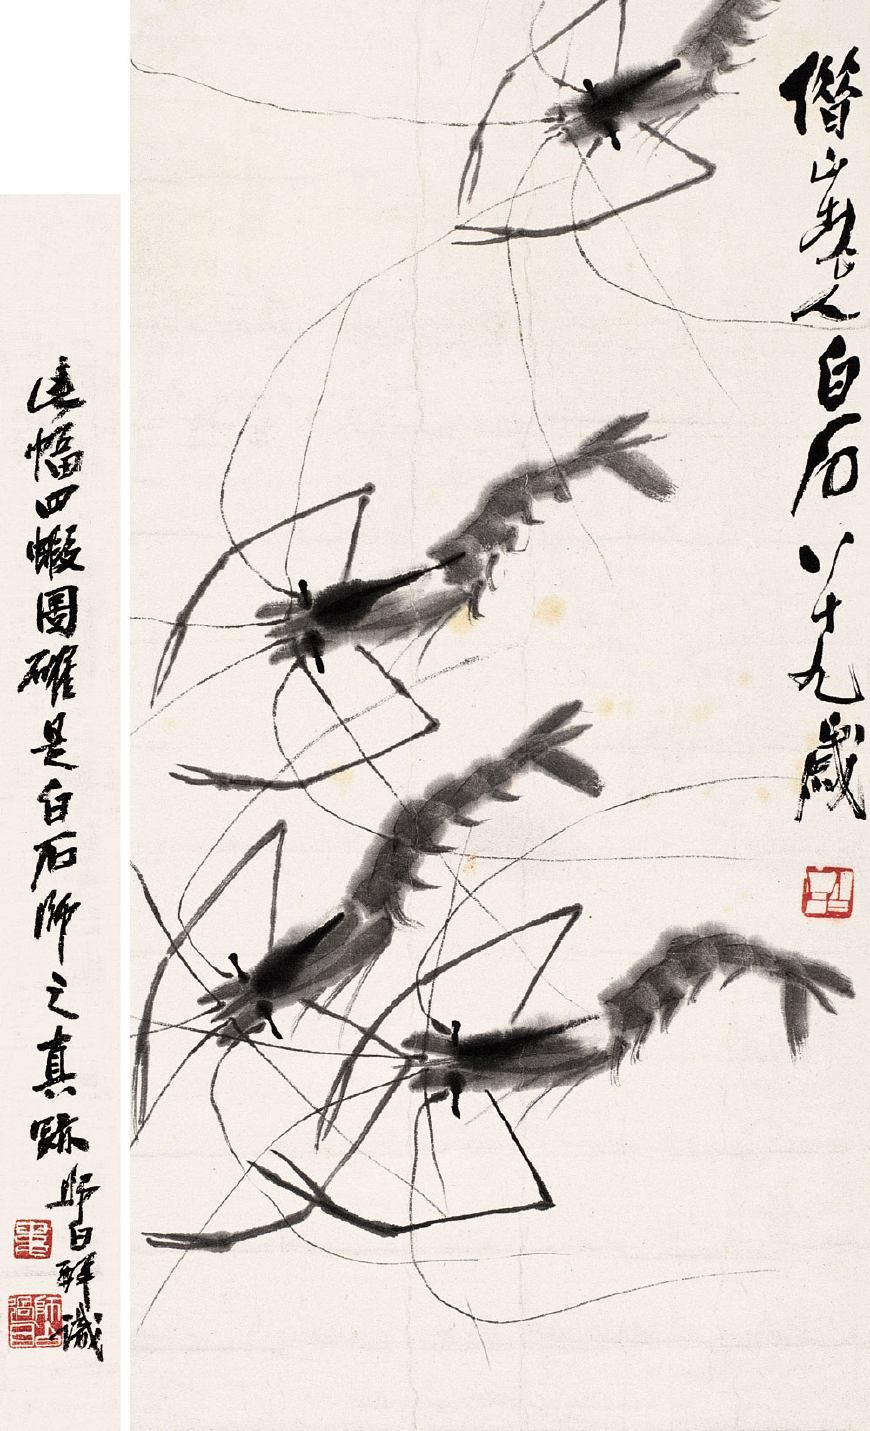 借山老人白石八十九歲
這幅四蝦圖確是白石師之真跡
師白拜識